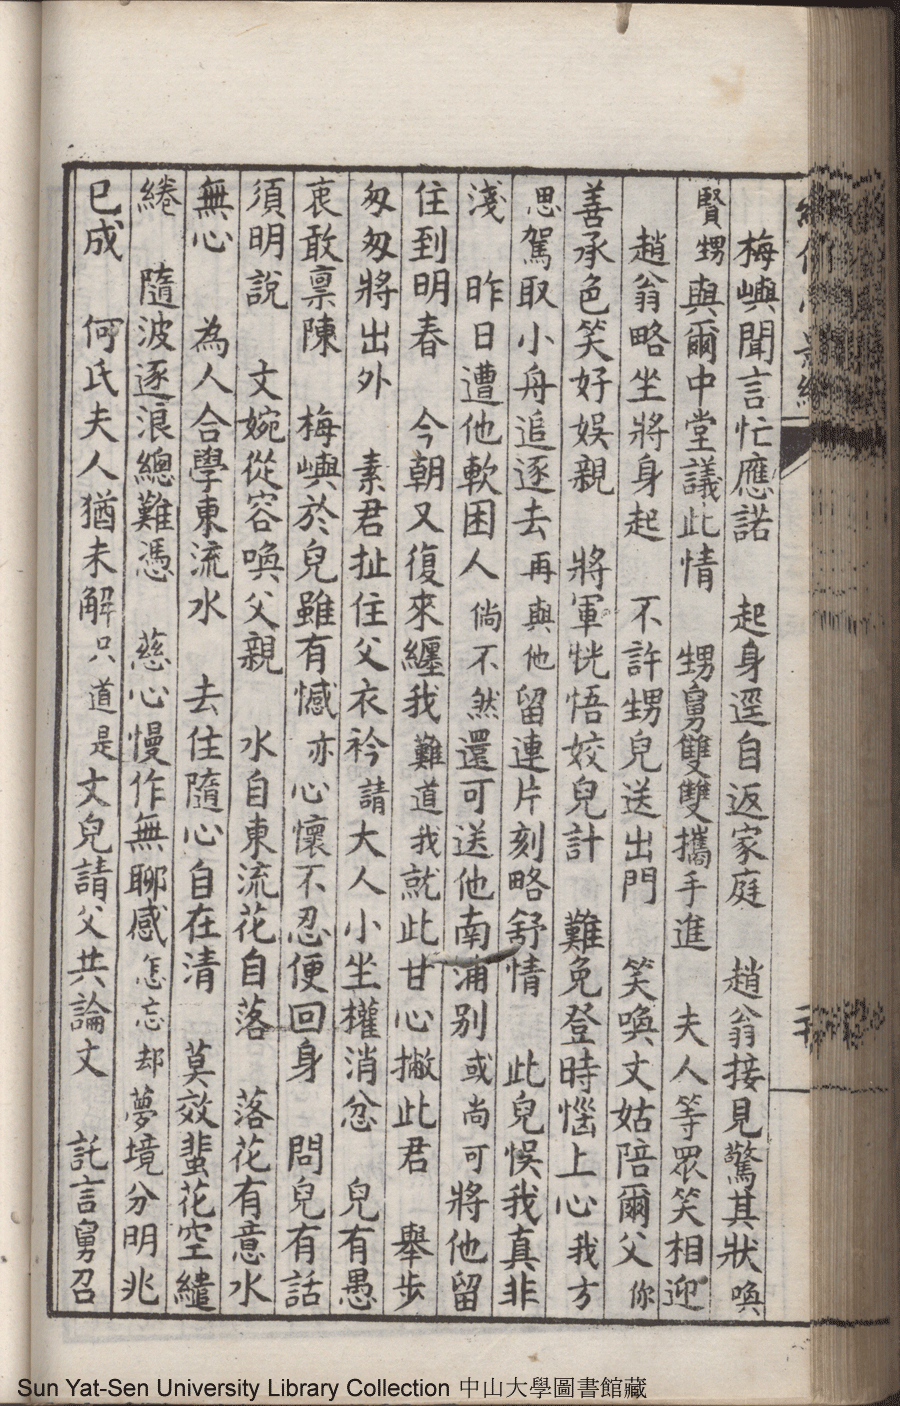 梅嶼聞言忙應諾　起身逕自返家庭　趙翁接見驚其狀 喚
賢甥與爾中堂議此情　甥舅雙雙攜手進　夫人等眾笑相迎
趙翁略坐將身起　不許甥兒送出門　笑喚文姑陪爾父 你
善承色笑好娛親　將軍恍悟姣兒計　難免登時惱上心 我方
思駕取小舟追逐去 再與他留連片刻略舒情　此兒悞我真非
淺　昨日遭他軟困人 倘不然還可送他南浦別 或尚可將他留
住到明春　今朝又復來纏我 難道我就此甘心撇此君　舉步
匆匆將出外　素君扯住父衣衿 請大人小坐權消忿　兒有愚
衷敢禀陳　梅嶼於兒雖有憾 亦心懷不忍便回身　問兒有話
須明說　文婉從容喚父親　水自東流花自落　落花有意水
無心　為人合學東流水　去住隨心自在清　莫效蜚花空繾
綣　隨波逐浪總難憑　慈心慢作無聊感 怎忘却夢境分明兆
已成　何氏夫人猶未解 只道是文兒請父共論文　託言舅召
Sun Yat-Sen University Library Collection 中山大學圖書館藏